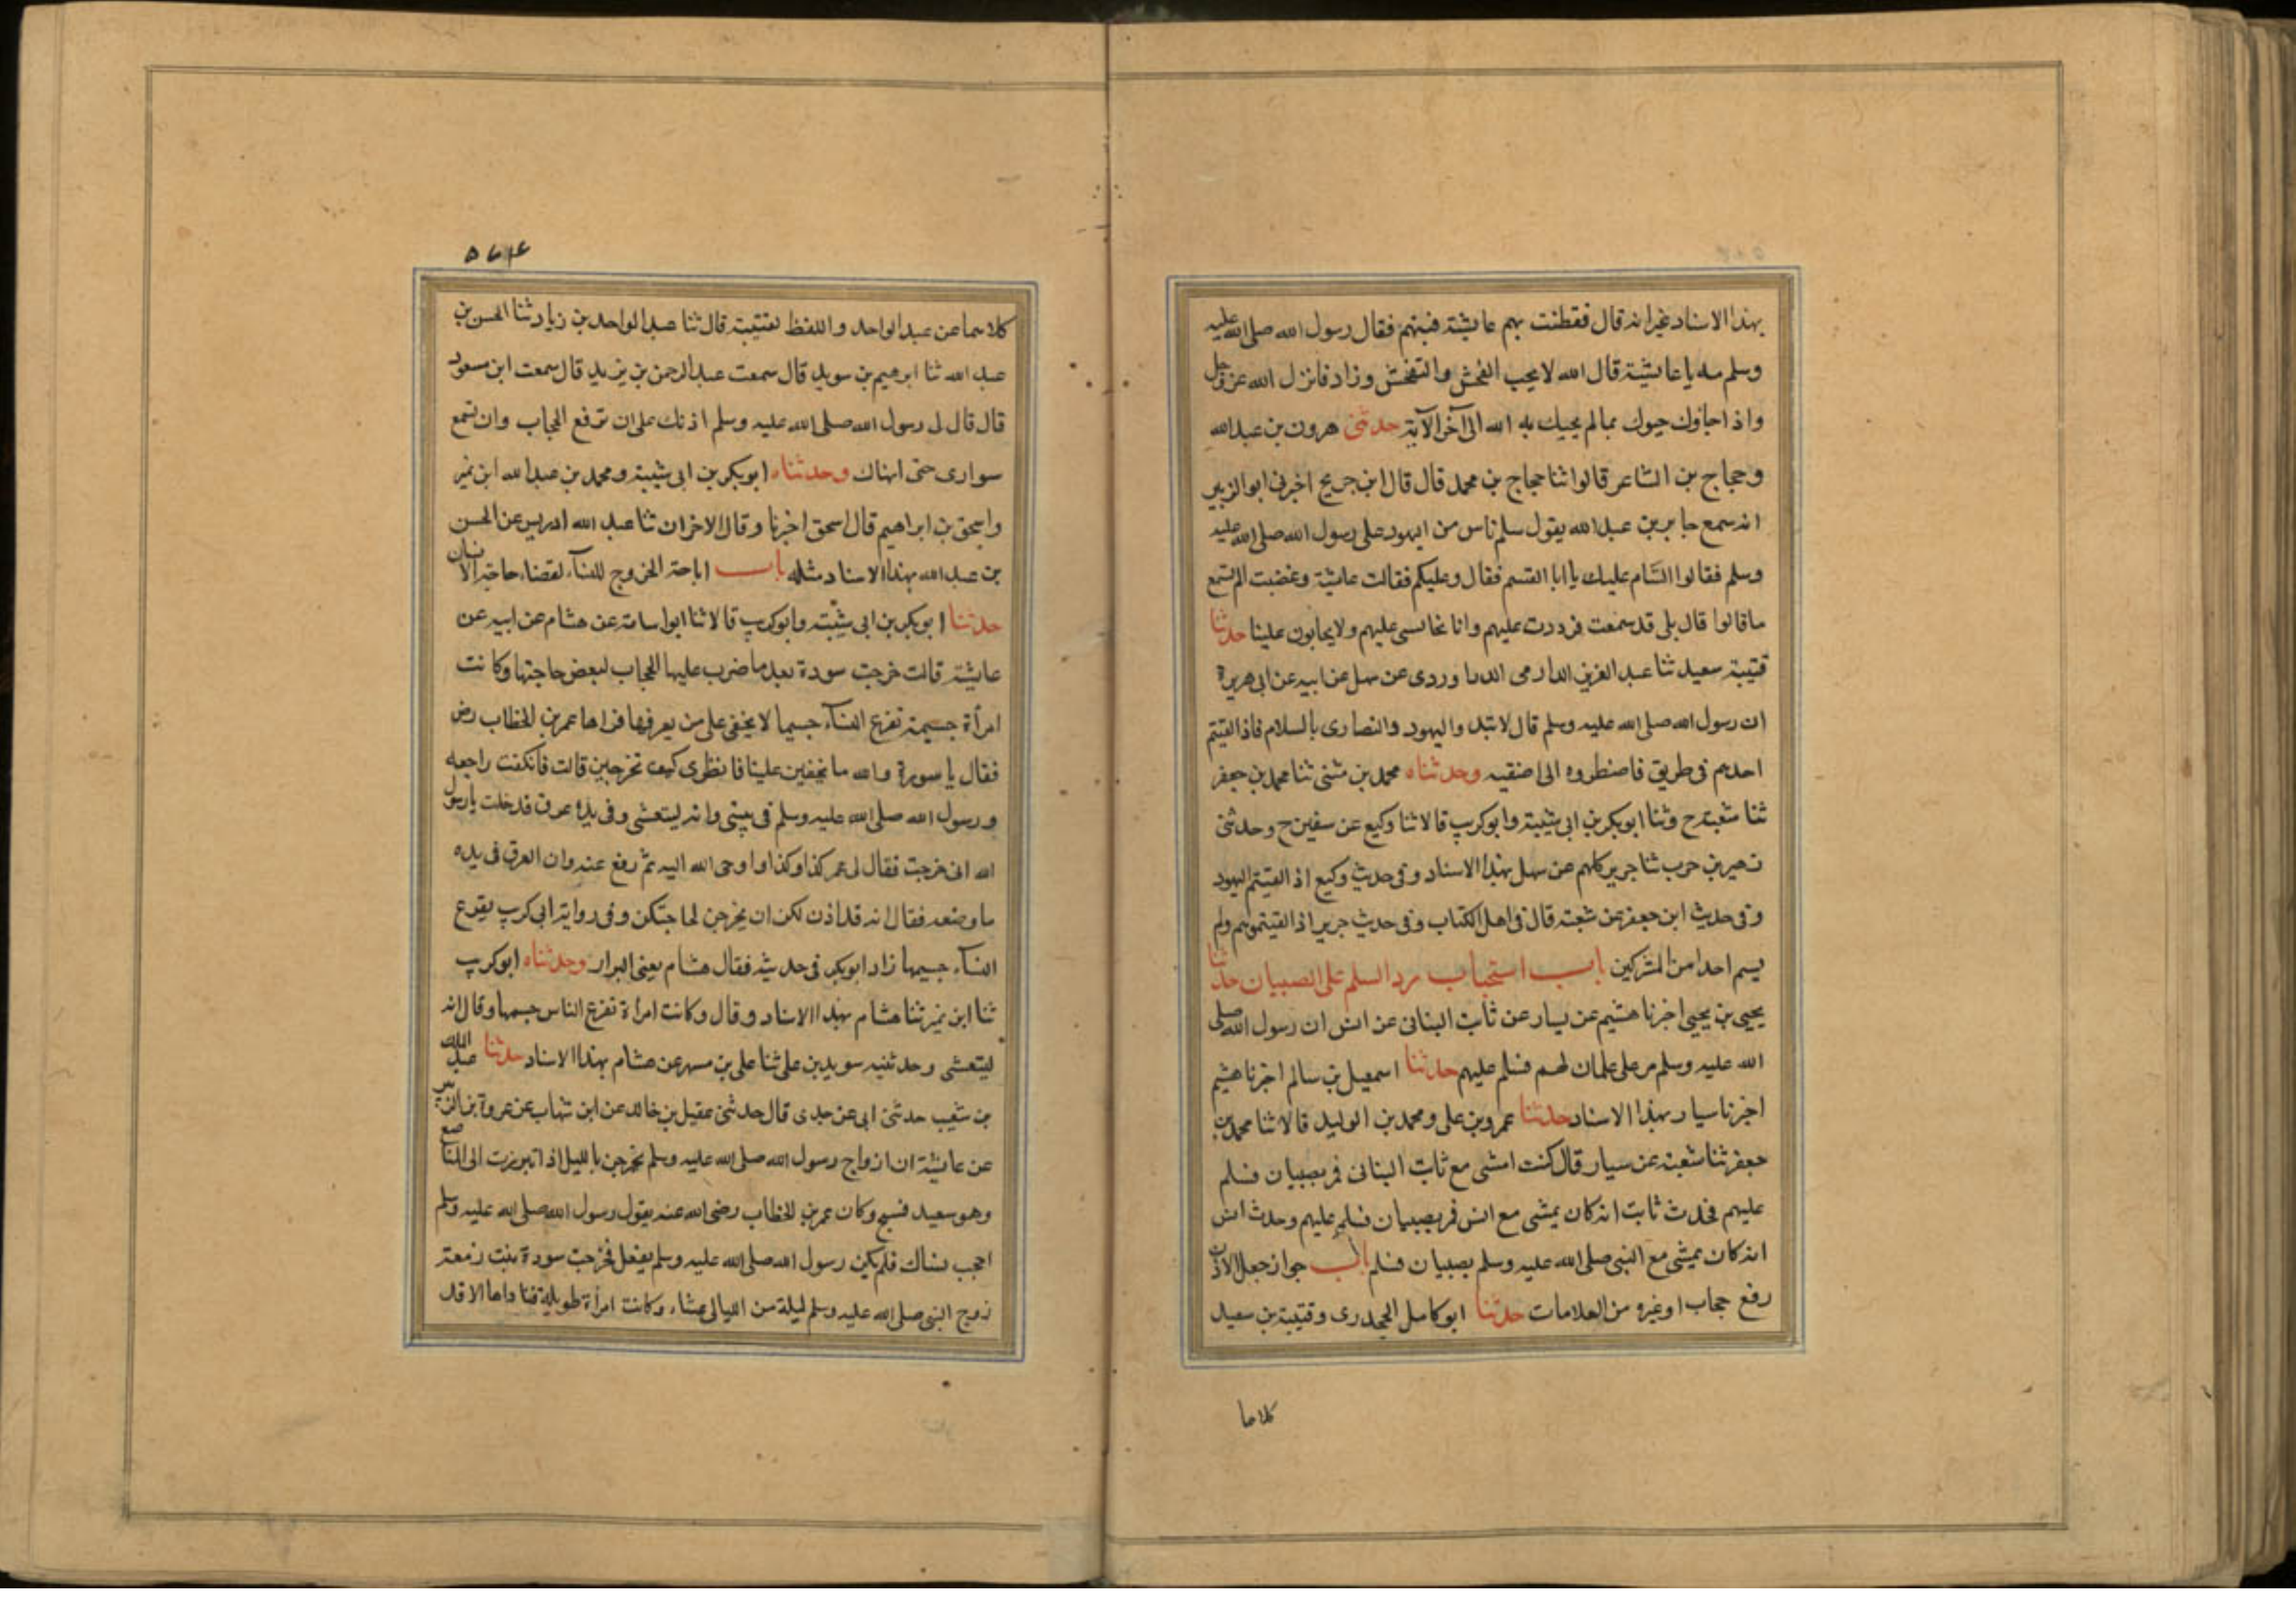 بهذا الاسناد غير انه قال فقطنت بهم عايشة فسبتهم فقال رسول الله صلى الله عليه
وسلم مه يا عايشة قال الله لا يحب الفحش والتفحش وزاد فانزل الله عز وجل
واذا جاؤك حيوك بما لم يحيك به الله الى آخر الآية حدثنى هرون بن عبد الله
وحجاج بن الشاعر قالوا ثنا حجاج بن محمد قال قال ابن جريج اخبرنى ابو الزبير
انه سمع جابر بن عبد الله يقول سلم ناس من اليهود على رسول الله صلى الله عليه
وسلم فقالوا السام عليك يا ابا القسم فقال وعليكم فقالت عايشة وغضبت الم تسمع
ما قالوا قال بلى قد سمعت فرددت عليهم وانا نجاب عليهم ولا يجابون علينا حدثنا
قتيبة سعيد ثنا عبد العزيز الدراوردى عن سهل عن ابيه عن ابى هريرة
ان رسول الله صلى الله عليه وسلم قال لا تبتدوا اليهود والنصارى بالسلام فاذا لقيتم
احدهم فى طريق فاضطروه الى اضيقه وحدثناه محمد بن مثنى ثنا محمد بن جعفر
ثنا شعبة ح وثنا ابو بكر بن ابى شيبة وابو كريب قالا ثنا وكيع عن سفين ح وحدثنى
زهير بن حرب ثنا جرير كلهم عن سهل بهذا الاسناد وفى حديث وكيع اذا لقيتم اليهود
وفى حديث ابن جعفر عن شعبة قال فى اهل الكتاب وفى حديث جرير اذا لقيتموهم ولم
يسم احدا من المشركين باب استحباب رد السلم على الصبيان حدثنا
يحيى بن يحيى اخبرنا هشيم عن يسار عن ثابت البنانى عن انس ان رسول الله صلى
الله عليه وسلم مر على غلمان لهم فسلم عليهم حدثنا اسمعيل بن سالم اخبرنا هشيم
اخبرنا سيار بهذا الاسناد حدثنا عمرو بن على ومحمد بن الوليد قالا ثنا محمد بن
جعفر ثنا شعبة عن سيار قال كنت امشى مع ثابت البنانى فمر بصبيان فسلم
عليهم فحدث ثابت انه كان يمشى مع انس فمر بصبيان فسلم عليهم وحدث انس
انه كان يمشى مع النبى صلى الله عليه وسلم بصبيان فسلم باب جواز جعل الاذن
رفع حجاب او غيره من العلامات حدثنا ابو كامل الجحدرى وقتيبة بن سعيد
كلاهما
كلاهما عن عبد الواحد واللفظ لقتيبة قال ثنا عبد الواحد بن زياد ثنا الحسن بن
عبد الله ثنا ابرهيم بن سويد قال سمعت عبد الرحمن بن يزيد قال سمعت ابن مسعود
قال قال لى رسول الله صلى الله عليه وسلم اذنك على ان ترفع الحجاب وان تسمع
سوارى حتى انهاك وحدثناه ابو بكر بن ابى شيبة ومحمد بن عبد الله ابن نمير
واسحق بن ابراهيم قال اسحق اخبرنا وقال الاخران ثنا عبد الله ادريس عن الحسن
بن عبد الله بهذا الاسناد مثله باب اباحة الخروج للنساء لقضاء حاجة الانسان
حدثنا ابو بكر بن ابى شيبة وابو كريب قالا ثنا ابو اسامة عن هشام عن ابيه عن
عايشة قالت خرجت سودة بعد ما ضرب عليها الحجاب لبعض حاجتها وكانت
امرأة جسيمة تفرع النساء جسيما لا يخفى على من يعرفها فراها عمر بن الخطاب رض
فقال يا سورة والله ما تخفين علينا فانظرى كيف تخرجين قالت فانكفت راجعه
ورسول الله صلى الله عليه وسلم فى بيتى وانه ليتعشى وفى يده عرق فدخلت يا رسول
الله انى خرجت فقال لى عمر كذا وكذا واوحى الله اليه ثم رفع عنه وان العرق فى يده
ما وضعه فقال انه قد اذن لكن ان يخرجن لحاجتكن وفى رواية ابى كريب يفرع
النساء جسيمها زاد ابو بكر فى حديثه فقال هشام يعنى البراز وحدثناه ابو كريب
ثنا ابن نمير ثنا هشام بهذا الاسناد وقال وكانت امرأة تفرع الناس جسمها وقال انه
ليتعشى وحدثنيه سويد بن على ثنا على بن مسهر عن هشام بهذا الاسناد حدثنا عبد الملك
بن شعيب حدثنى ابى عن جدى قال حدثنى عقيل بن خالد عن ابن شهاب عن عروة بن الزبير
عن عايشة ان ازواج رسول الله صلى الله عليه وسلم يخرجن بالليل اذا تبرزت الى المناصع
وهو سعيد فسيح وكان عمر بن الخطاب رضى الله عنه يقول رسول الله صلى الله عليه وسلم
احجب نساك فلم يكن رسول الله صلى الله عليه وسلم يفعل فخرجت سودة بنت زمعة
زوج النبى صلى الله عليه وسلم ليلة من الليالى عشاء وكانت امرأة طويلة فناداها الا قد